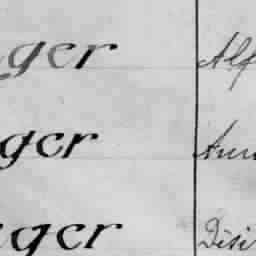 ger Alf
ger Ann
ager Disi